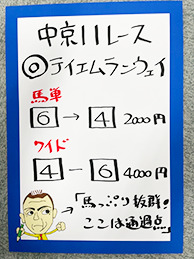 中京11レース
◎テイエムランウェイ
馬単
6→4 2000円
ワイド
4-6 4000円
「馬っぷり抜群!
ここは通過点」